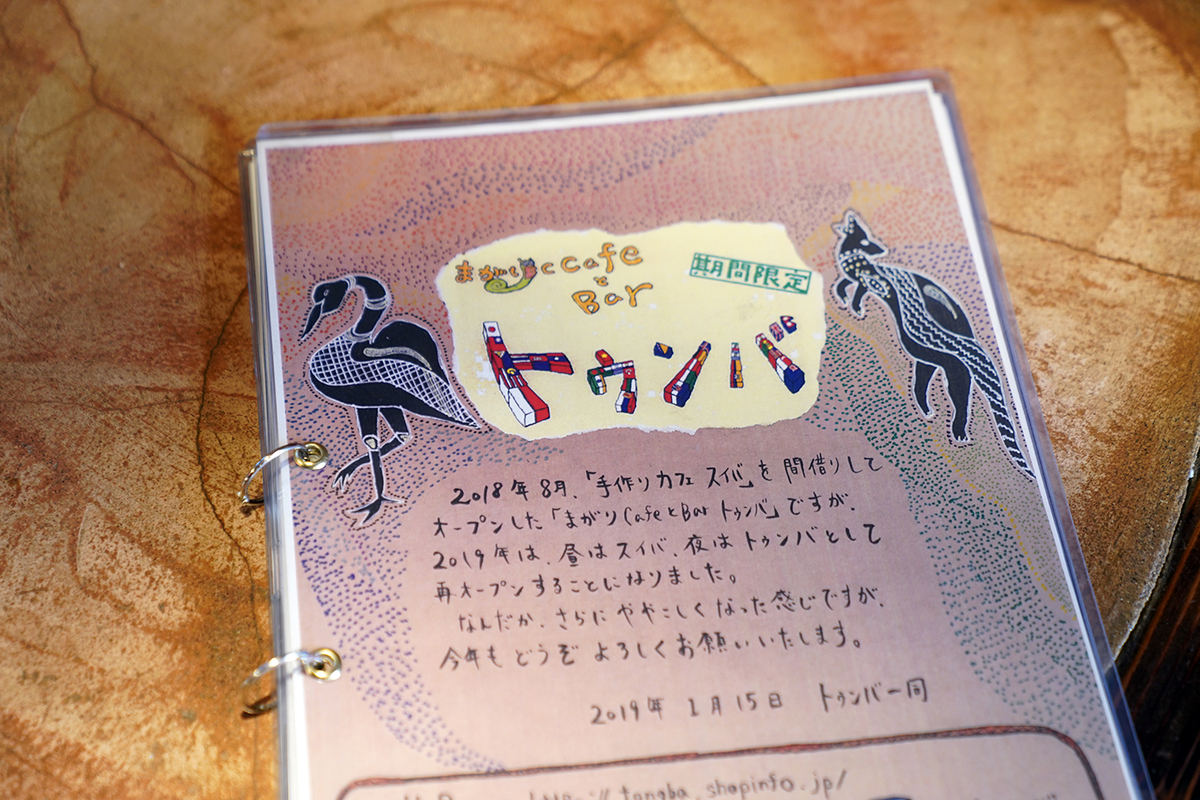 まがりcCafe
と
Bar
期間限定
トゥンバ
2018年8月、「手作りカフェ スイバ」を間借りして
オープンした「まがりCafeとBar トゥンバ」ですが、
2019年は、昼はスイバ、夜はトゥンバとして
再オープンすることになりました。
なんだか、さらにややこしくなった感じですが、
今年もどうぞよろしくお願いいたします。
2019年 1月15日 トゥンバ一同
tongba.shopinfo.jp/